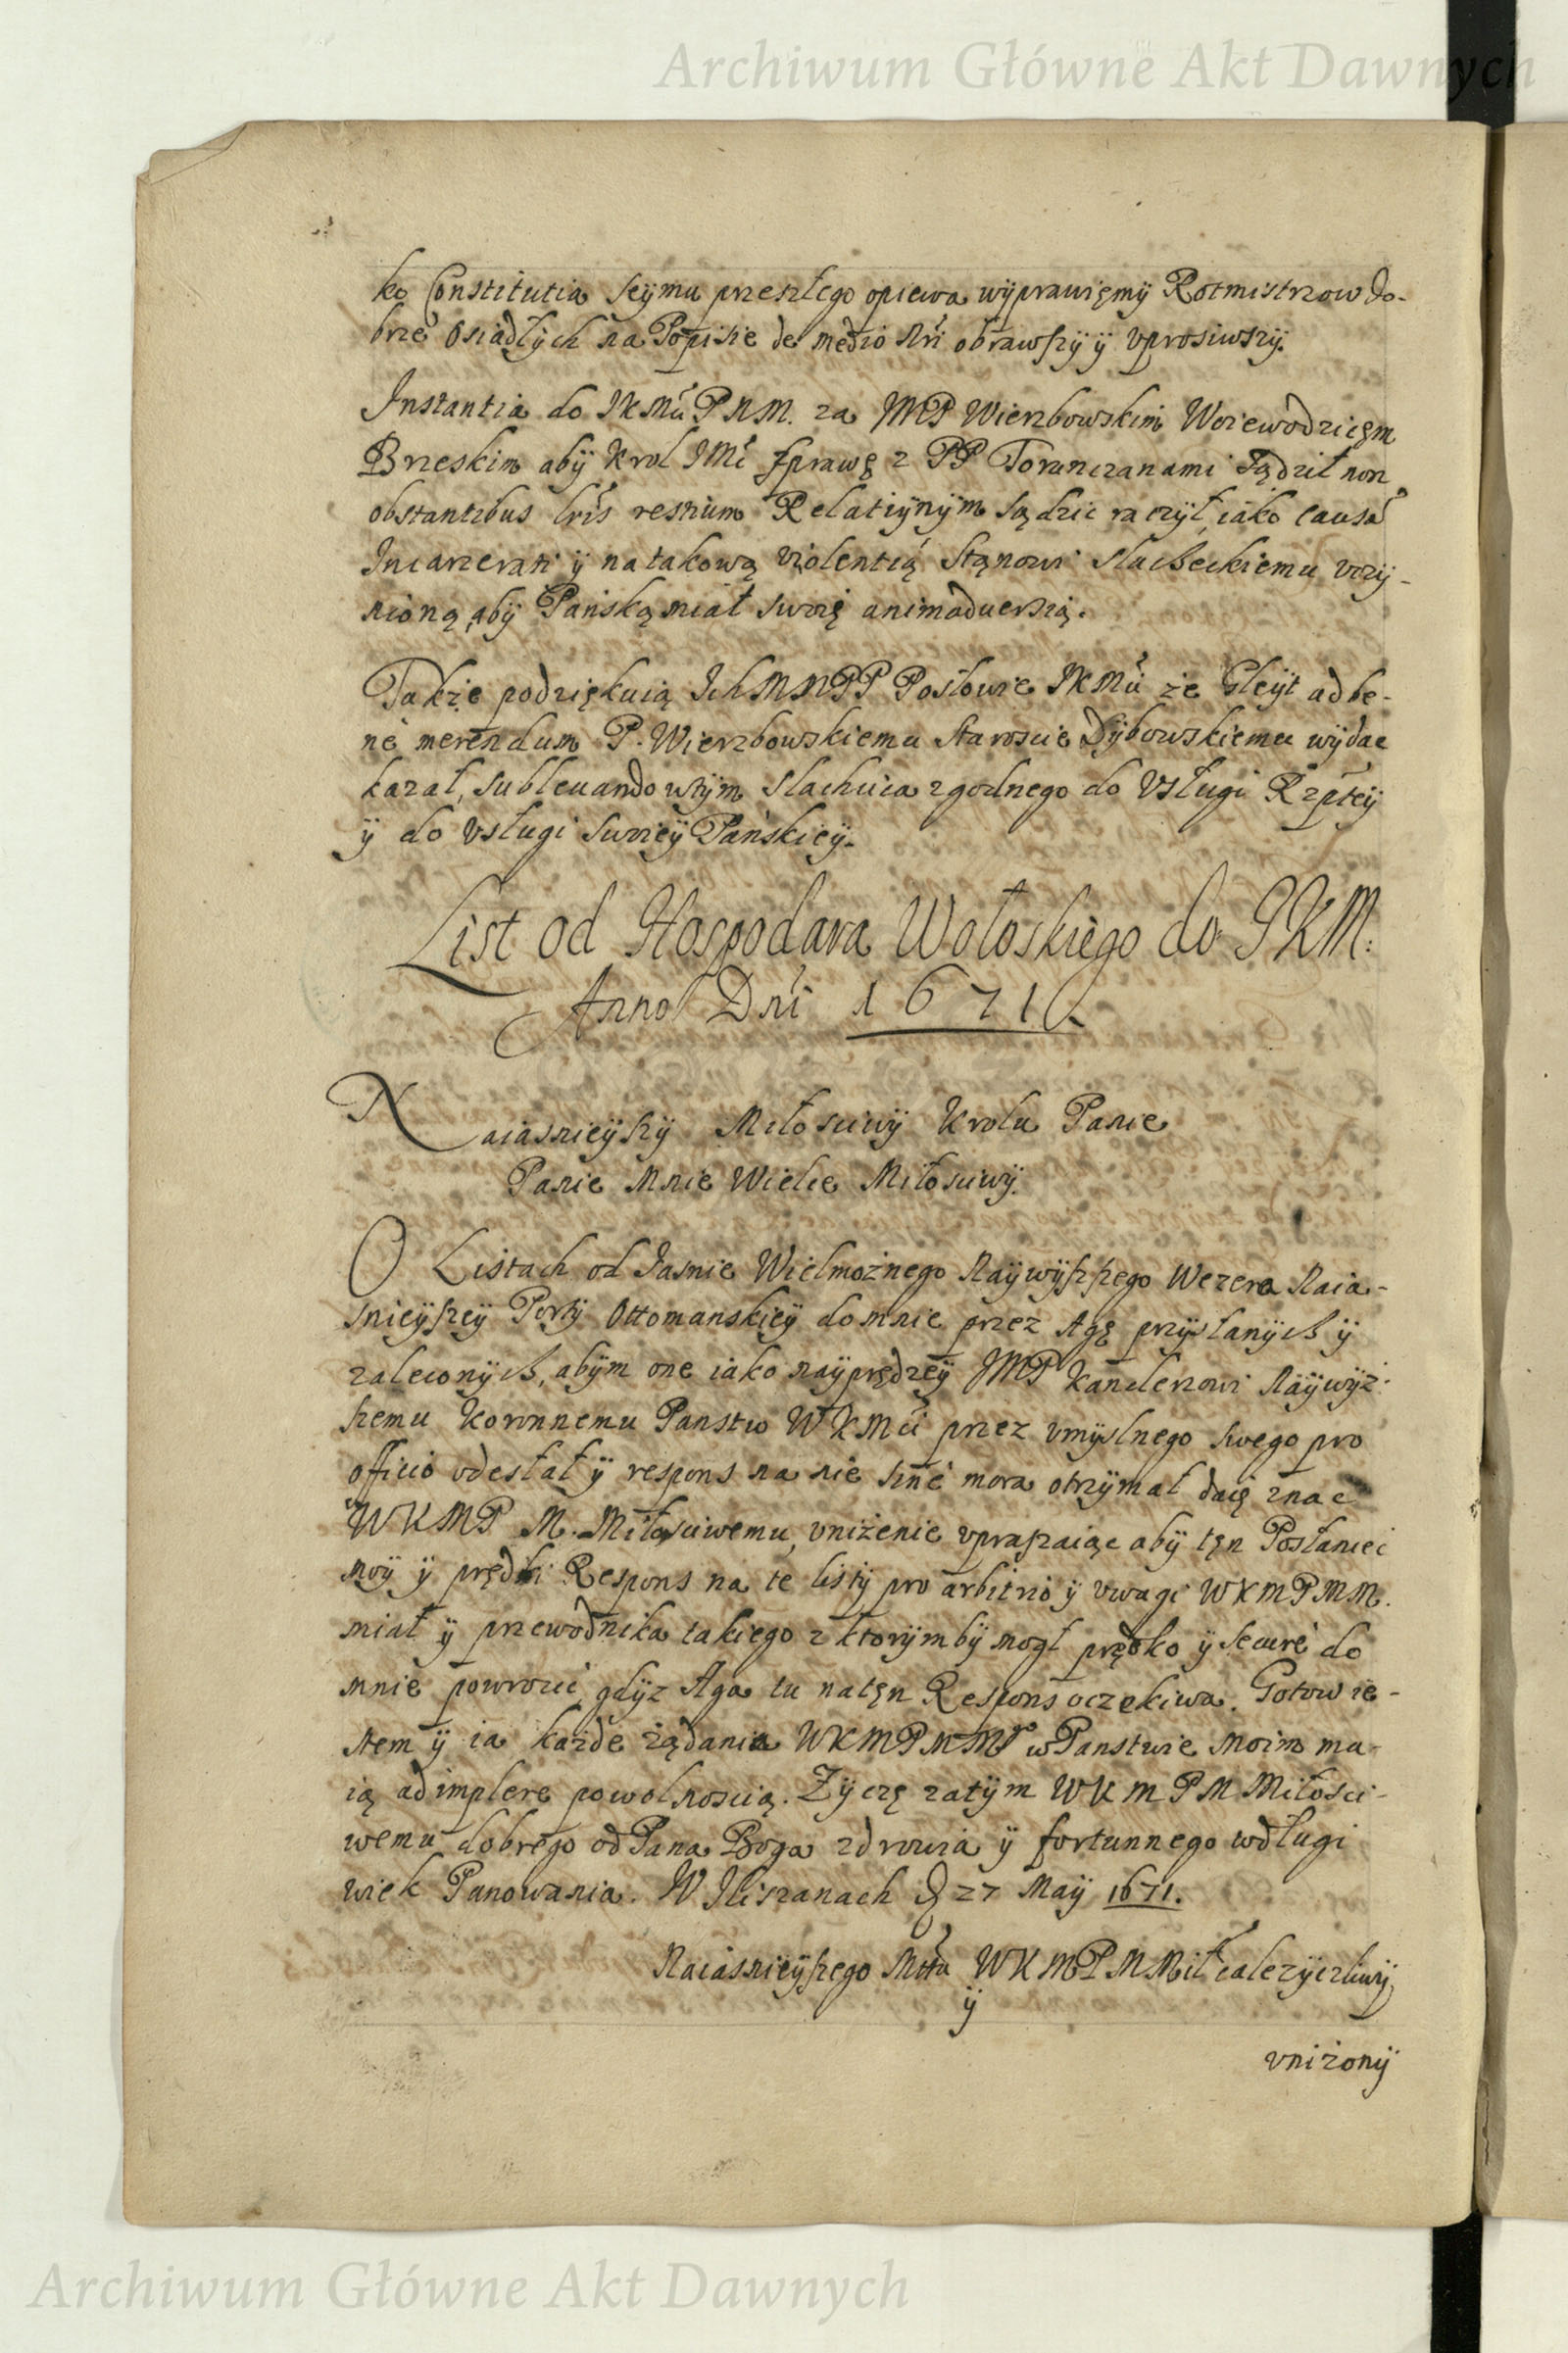 Archiwum Główne Akt Dawnych
ko Constitutia seymu przeszłego opiewa wyprawięmy Rotmistrzow do-
brze osiadłych na Popisie de medio nri obrawszy y vprosiwszy.
Instantia do JKMci PNM. za JMP Wierzbowskim Woiewodzicęm
Brzeskim aby Krol JMć sprawę z PP Torunczanami sądził non
obstantibus lris resnum Relatiynym sądzic raczył, iako causa
Incarcerati y na takową violentią Stąnowi slacheckiemu vczy-
nioną, aby Pańską miał swoię animaduersią.
Także podziękuią IchMMPP Posłowie JKMci że Gleyt ad be-
ne merendum P. Wierzbowskiemu Staroscie Dybowskiemu wydac
kazał, subleuando wtym slachcica zgodnego do vsługi Rzpltey
y do vsługi swoiey Pańskiey.
List od Hospodara Wołoskiego do JKM:
Anno Dni 1671
Naiasnieyszy Miłosciwy Krolu Panie
Panie Mnie Wielce Miłosciwy.
O Listach od Jasnie Wielmożnego Naywyższego Wezera Naia-
snieyszey Porty Ottomanskiey do mnie przez Agę przysłanych y
zaleconych, abym one iako nayprędzey JMP Kanclerzowi Naywyż-
szemu Koronnemu Panstw WKMci przez vmyslnego swego pro
officio odesłał y respons na nie sine mora otrzymał daię znac
WKMP M. Miłosciwemu, vniżenie vpraszaiąc aby tęn Posłaniec
moy y prędki Respons na te listy pro arbitrio y vwagi WKMPMM.
miał y przewodnika takiego z ktorymby mogł prędko y secure do
mnie powrocić gdyz Aga tu natęn Respons oczekiwa. Gotow ie-
stem y ia każde żądania WKMPMMgo w Panstwie moim mu-
ią adimplere powolnoscią. Zyczę zatym WKMPM Miłosci-
wemu dobrego od Pana Boga zdrowia y fortunnego wdługi
wiek Panowania. W Iliszanach D 27 Maij 1671.
Naiasnieyszego Mttu WKMPMMił całezyczliwy
y
vniżony
Archiwum Główne Akt Dawnych